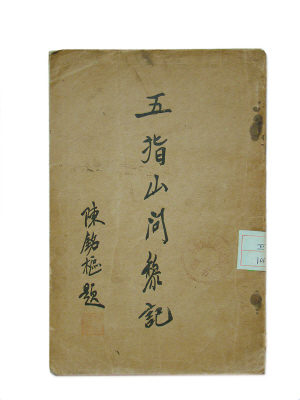 五指山问黎記
陳銘樞題